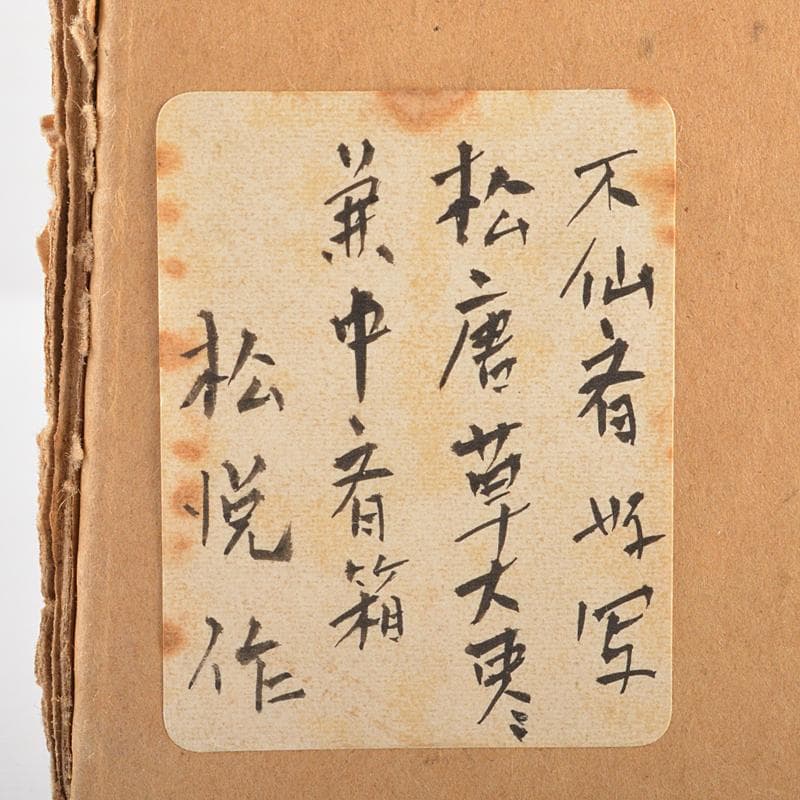 不仙斎好写
松唐草大枣
兼中斎箱
松悦作